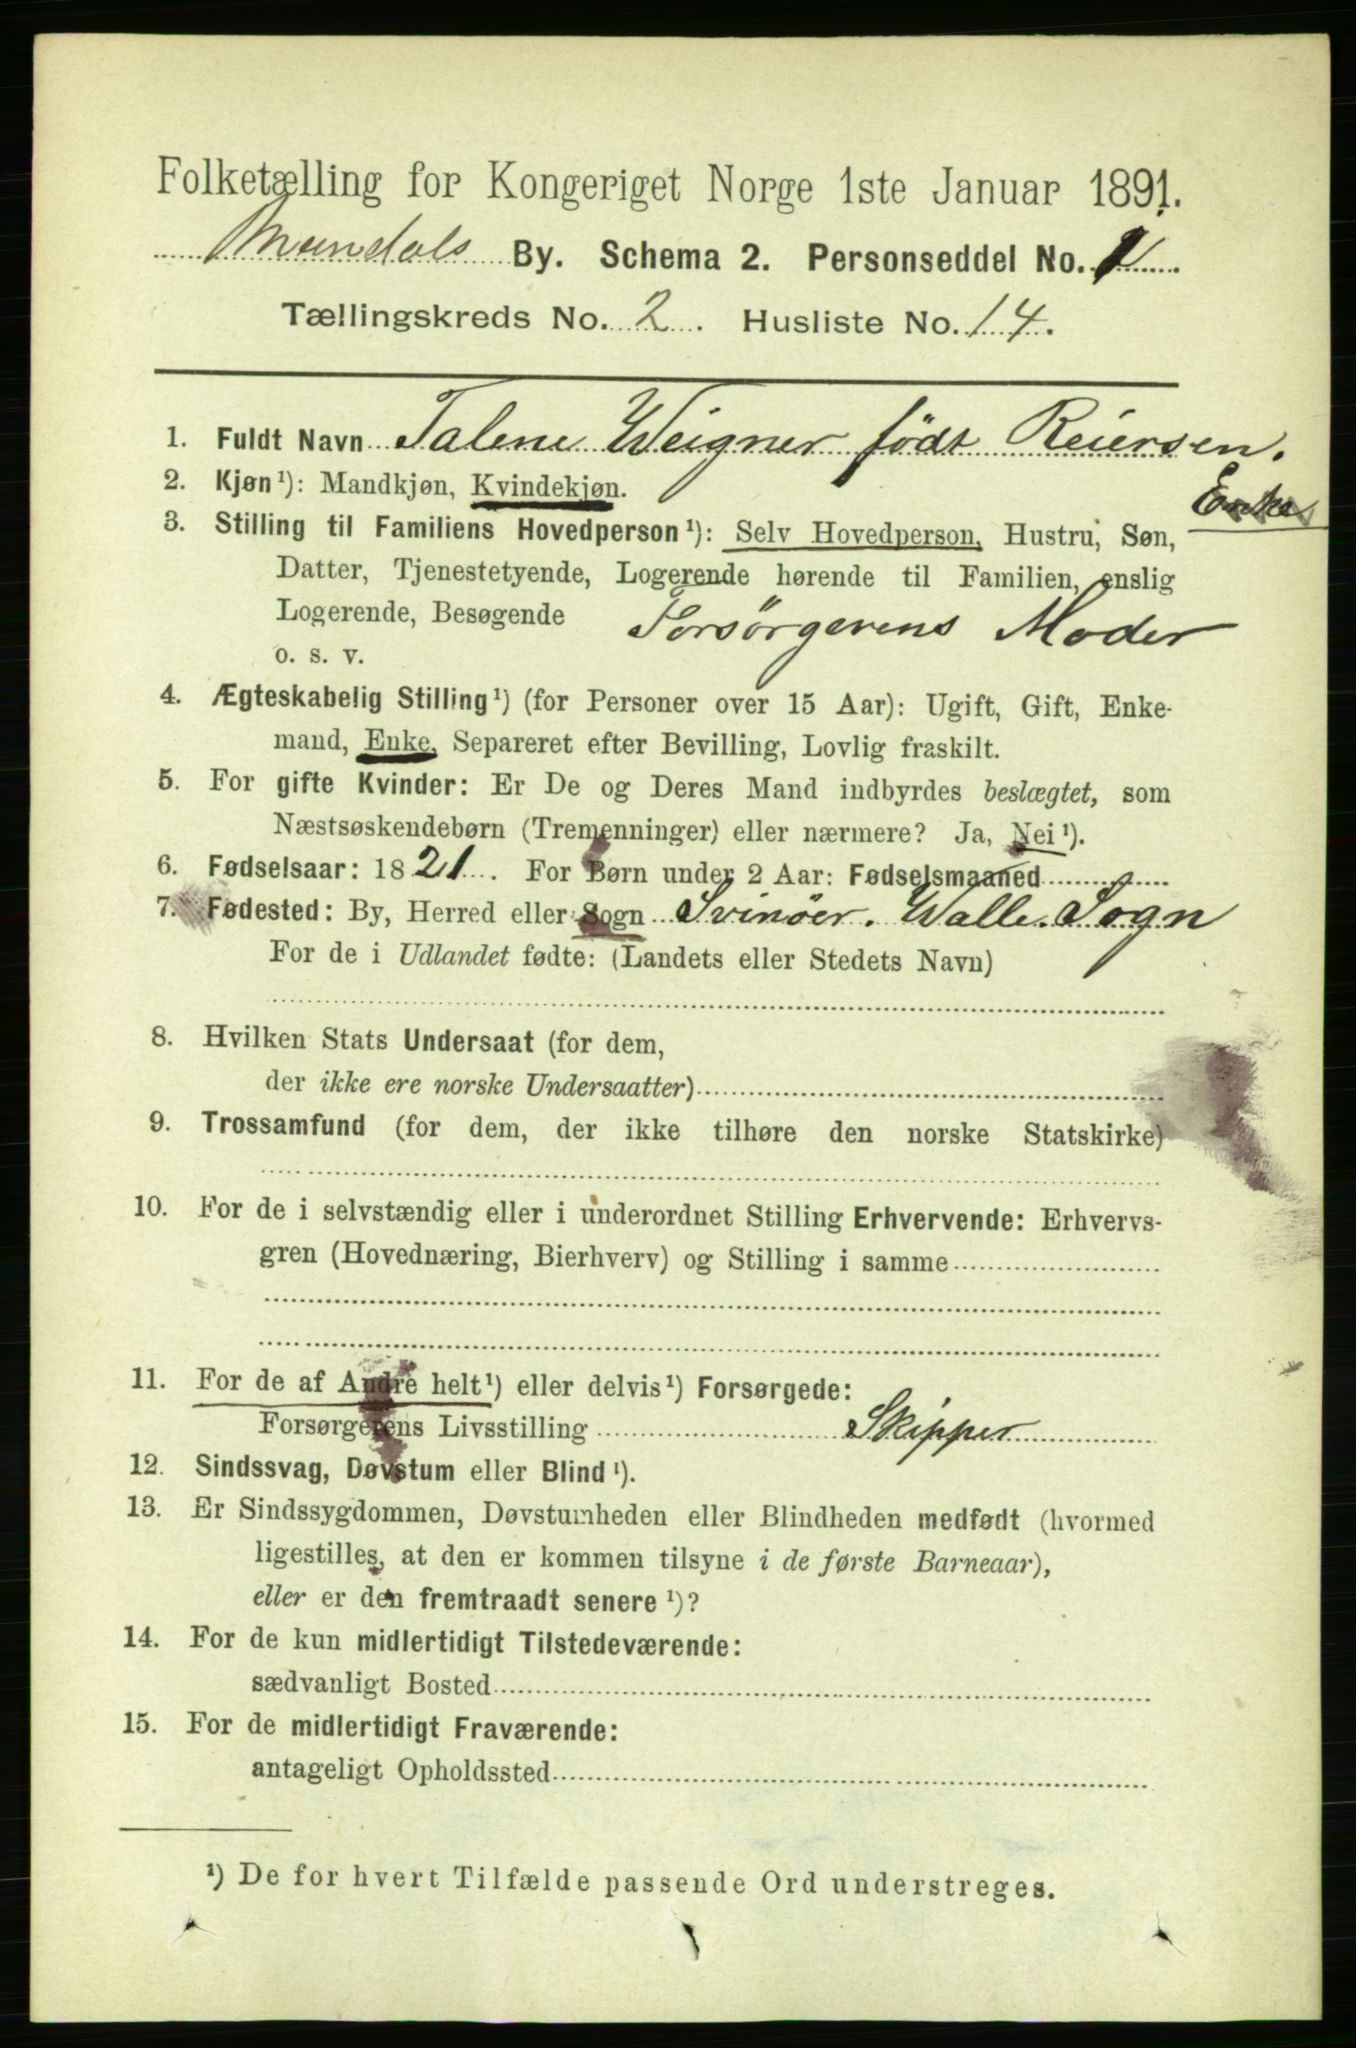 Folketælling for Kongeriget Norge 1ste Januar 1891.
Mandals By. Schema 2. Personseddel No. 1.
Tællingskreds No. 2. Husliste No. 14.
1. Fuldt Navn Talene Weigner født Reiersen.
2. Kjøn ¹): Mandkjøn, Kvindekjøn.
Enke
3. Stilling til Familiens Hovedperson ¹): Selv Hovedperson, Hustru, Søn,
Datter, Tjenestetyende, Logerende hørende til Familien, enslig
Logerende, Besøgende Forsörgerens Moder
o. s. v.
4. Ægteskabelig Stilling ¹) (for Personer over 15 Aar): Ugift, Gift, Enke-
mand, Enke, Separeret efter Bevilling, Lovlig fraskilt.
5. For gifte Kvinder: Er De og Deres Mand indbyrdes beslægtet, som
Næstsøskendebørn (Tremenninger) eller nærmere? Ja, Nei ¹).
6. Fødselsaar: 1821. For Børn under 2 Aar: Fødselsmaaned
7. Fødested: By, Herred eller Sogn Svinöer. Walle. Sogn
For de i Udlandet fødte: (Landets eller Stedets Navn)
8. Hvilken Stats Undersaat (for dem,
der ikke ere norske Undersaatter)
9. Trossamfund (for dem, der ikke tilhøre den norske Statskirke)
10. For de i selvstændig eller i underordnet Stilling Erhvervende: Erhvervs-
gren (Hovednæring, Bierhverv) og Stilling i samme
11. For de af Andre helt ¹) eller delvis ¹) Forsørgede:
Forsørgerens Livsstilling Skipper
12. Sindssvag, Døvstum eller Blind ¹).
13. Er Sindssygdommen, Døvstumheden eller Blindheden medfødt (hvormed
ligestilles, at den er kommen tilsyne i de første Barneaar),
eller er den fremtraadt senere ¹)?
14. For de kun midlertidigt Tilstedeværende:
sædvanligt Bosted
15. For de midlertidigt Fraværende:
antageligt Opholdssted
¹) De for hvert Tilfælde passende Ord understreges.